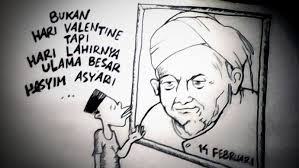 BUKAN
HARI VALENTINE
TAPI
HARI LAHIRNYA
ULAMA BESAR
HASYIM ASYARI
14 FEBRUARI